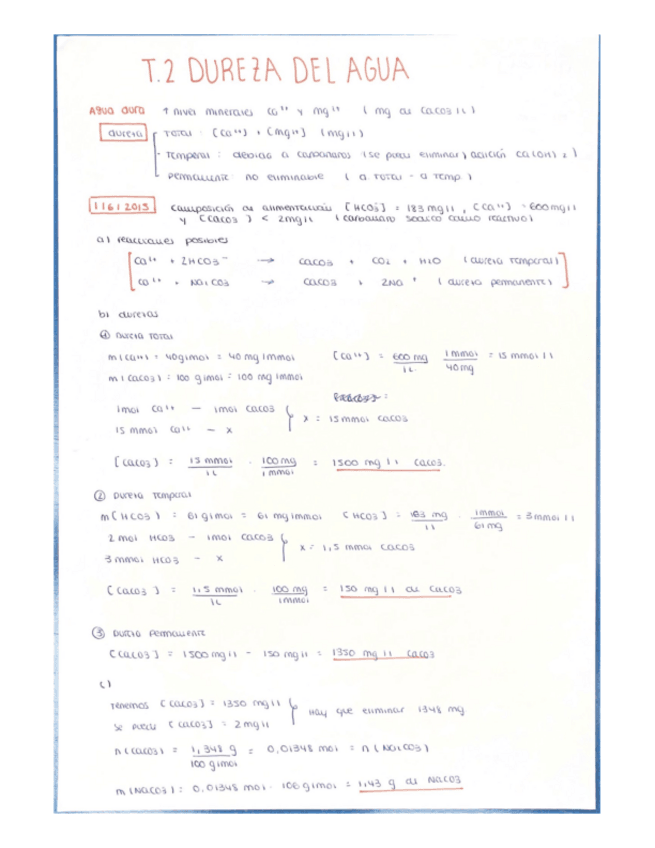 T.2 DUREZA DEL AGUA
Agua dura ↑ nivel minerales Ca⁺⁺ y Mg⁺⁺ (mg de CaCO3/l)
dureza Total: [Ca⁺⁺] + [Mg⁺⁺] (mg/l)
- Temporal: debida a carbonatos (se puede eliminar) adición Ca(OH)2)
Permanente: no eliminable (d. Total - d. Temp)
1/6/2015 composición de alimentación [HCO3⁻] = 183 mg/l, [Ca⁺⁺] = 600 mg/l
y [CaCO3] < 2mg/l (carbonato sódico como reactivo)
a) reacciones posibles
Ca⁺⁺ + 2HCO3⁻ → CaCO3 + CO2 + H2O (dureza temporal)
Ca⁺⁺ + Na2CO3 → CaCO3 + 2Na⁺ (dureza permanente)
b) durezas
① Dureza total
m(Ca⁺⁺) = 40g/mol = 40 mg/mmol [Ca⁺⁺] = 600 mg / 1L · 1mmol / 40mg = 15 mmol/l
m(CaCO3) = 100 g/mol = 100 mg/mmol
1mol Ca⁺⁺ — 1mol CaCO3
15 mmol Ca⁺⁺ — x } x = 15 mmol CaCO3
[CaCO3] = 15 mmol / 1L · 100mg / 1mmol = 1500 mg/l CaCO3.
② Dureza temporal
m(HCO3) = 61 g/mol = 61 mg/mmol [HCO3] = 183 mg / 1l · 1mmol / 61mg = 3mmol/l
2 mol HCO3 — 1mol CaCO3
3 mmol HCO3 — x } x = 1,5 mmol CaCO3
[CaCO3] = 1,5 mmol / 1L · 100 mg / 1mmol = 150 mg/l de CaCO3
③ Dureza permanente
[CaCO3] = 1500mg/l - 150 mg/l = 1350 mg/l CaCO3
c)
Tenemos [CaCO3] = 1350 mg/l
se puede [CaCO3] = 2mg/l } Hay que eliminar 1348 mg
n(CaCO3) = 1,348 g / 100 g/mol = 0,01348 mol = n(Na2CO3)
m(NaCO3) = 0,01348 mol · 106g/mol = 1,43 g de NaCO3